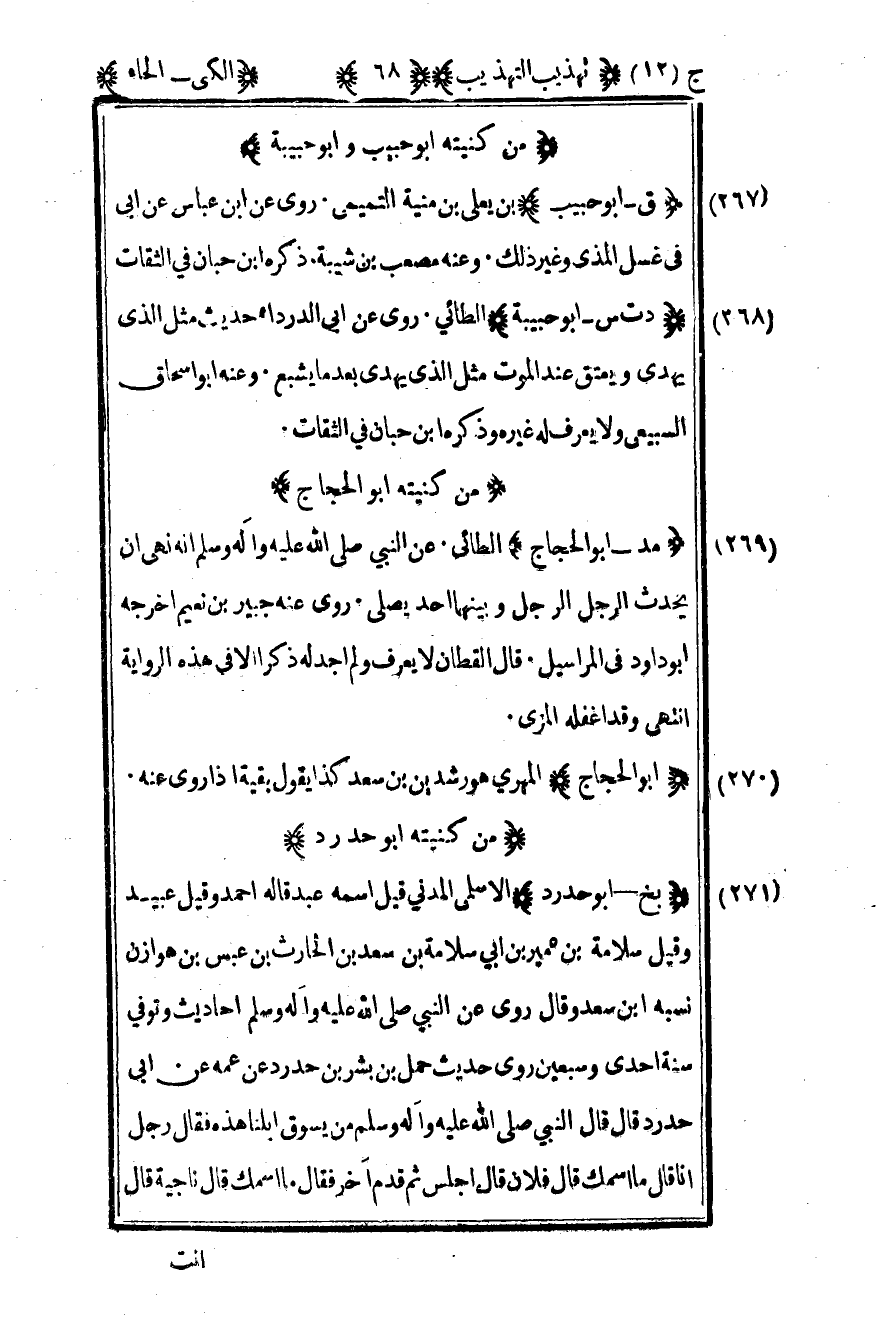 ج (١٢) ﴿ تهذيب التهذيب ﴾ ﴿ ٦٨ ﴾ ﴿ الكنى ـ الحاء ﴾
﴿ من كنيته ابو حبيب و ابو حبيبة ﴾
(٢٦٧) ﴿ ق ـ ابو حبيب ﴾ بن يعلى بن منية التميمي . روى عن ابن عباس عن ابى
فى غسل المذى وغير ذلك . وعنه مصعب بن شيبة . ذكره ابن حبان في الثقات
(٢٦٨) ﴿ دت س ـ ابو حبيبة ﴾ الطائي . روى عن ابى الدرداء حديث مثل الذى
يهدى و يعتق عند الموت مثل الذى يهدى بعد ما يشبع . وعنه ابو اسحاق
السبيعى ولا يعرف له غيره وذكره ابن حبان في الثقات .
﴿ من كنيته ابو الحجاج ﴾
(٢٦٩) ﴿ مد ـ ابو الحجاج ﴾ الطائى . عن النبي صلى الله عليه وآله وسلم انه نهى ان
يحدث الرجل الرجل و بينهما احد يصلى . روى عنه جبير بن نعيم اخرجه
ابو داود فى المراسيل . قال القطان لا يعرف ولم اجد له ذكرا الا في هذه الرواية
انتهى وقد اغفله المزى .
(٢٧٠) ﴿ ابو الحجاج ﴾ المهري هو رشدين بن سعد كذا يقول بقية اذا روى عنه .
﴿ من كنيته ابو حدرد ﴾
(٢٧١) ﴿ بخ ـ ابو حدرد ﴾ الاسلمى المدني قيل اسمه عبد قاله احمد وقيل عبيد
وقيل سلامة بن عمير بن ابي سلامة بن سعد بن الحارث بن عبس بن هوازن
نسبه ابن سعد وقال روى عن النبي صلى الله عليه وآله وسلم احاديث وتوفي
سنة احدى وسبعين روى حديث حمل بن بشر بن حدرد عن عمه عن ابى
حدرد قال قال النبي صلى الله عليه وآله وسلم من يسوق ابلنا هذه فقال رجل
انا قال ما اسمك قال فلان قال اجلس ثم قدم آخر فقال ما اسمك قال ناجية قال
انت